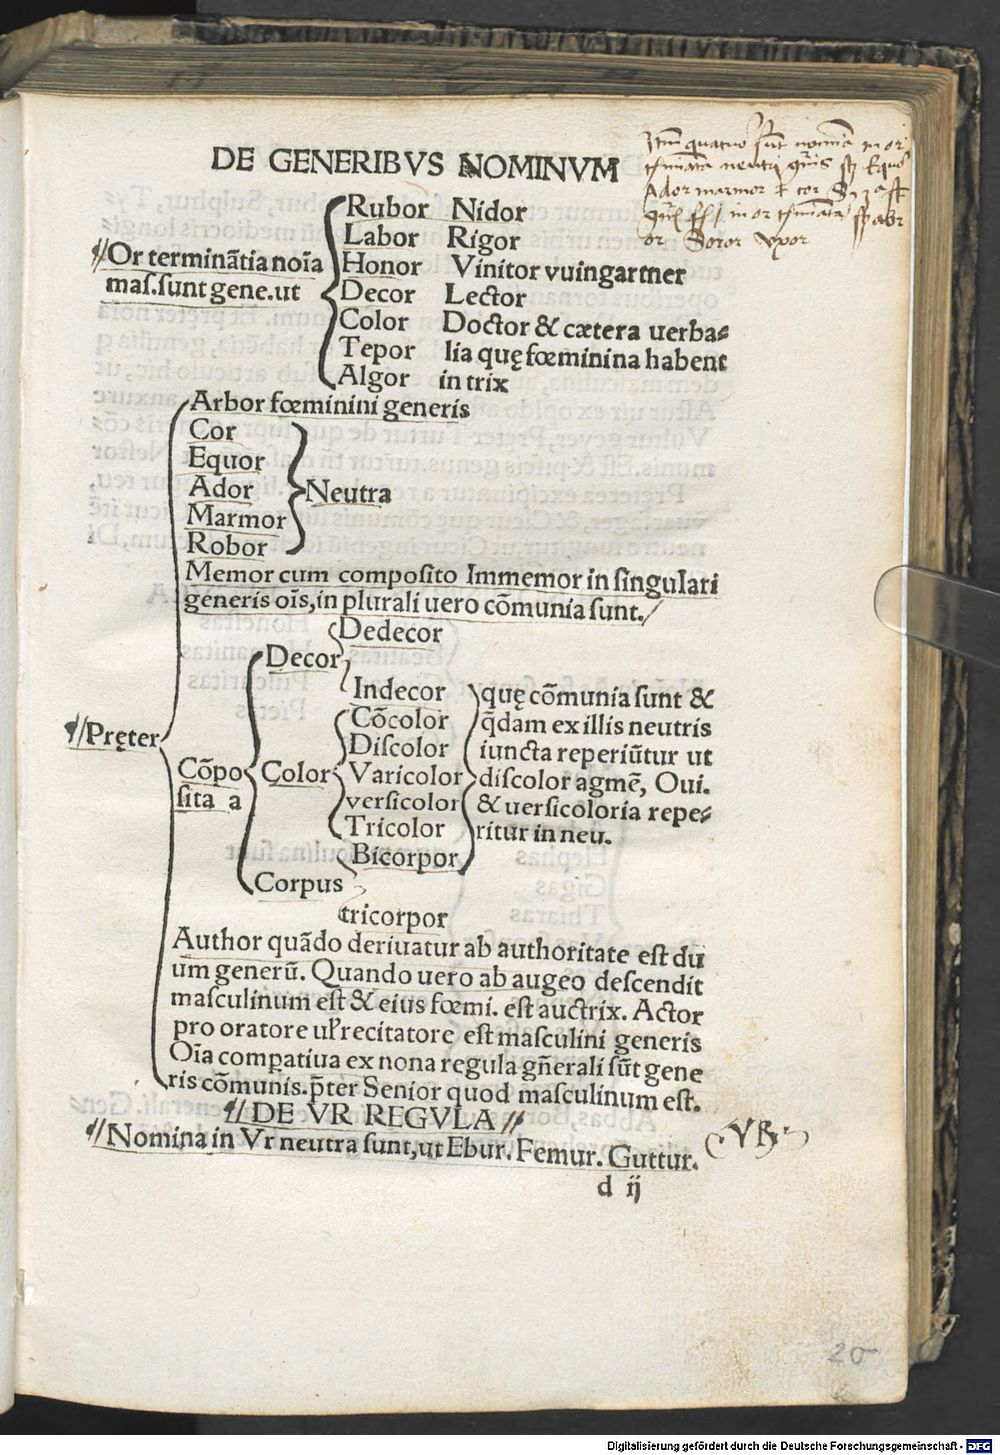 DE GENERIBVS NOMINVM
Itm quatuor sunt nomina in or
Ador marmor et cor
in or
or Soror vxor
Rubor Nidor
Labor Rigor
Or terminãtia noĩa
Honor Vinitor vuingartner
mas.sunt gene.ut
Decor Lector
Color Doctor & cætera uerba⸗
Tepor lia quę fœminina habent
Algor in trix
Arbor fœminini generis
Cor
Equor
Ador
Neutra
Marmor
Robor
Memor cum composito Immemor in singulari
generis oĩs,in plurali uero cõmunia sunt.
Dedecor
Decor
Indecor quę cõmunia sunt &
Cõcolor q̃dam ex illis neutris
Pręter
Discolor iuncta reperiũtur ut
Cõpo Color Varicolor discolor agmẽ, Oui.
sita a versicolor & uersicoloria repe⸗
Tricolor ritur in neu.
Bicorpor
Corpus
tricorpor
Author quãdo deriuatur ab authoritate est du
um generũ. Quando uero ab augeo descendit
masculinum est & eius fœmi. est auctrix. Actor
pro oratore ul' recitatore est masculini generis
Oĩa compatiua ex nona regula gñerali sũt gene
ris cõmunis.p̃ter Senior quod masculinum est.
DE VR REGVLA
Nomina in Vr neutra sunt,ut Ebur. Femur. Guttur.
VR
d ij
20
Digitalisierung gefördert durch die Deutsche Forschungsgemeinschaft - DFG